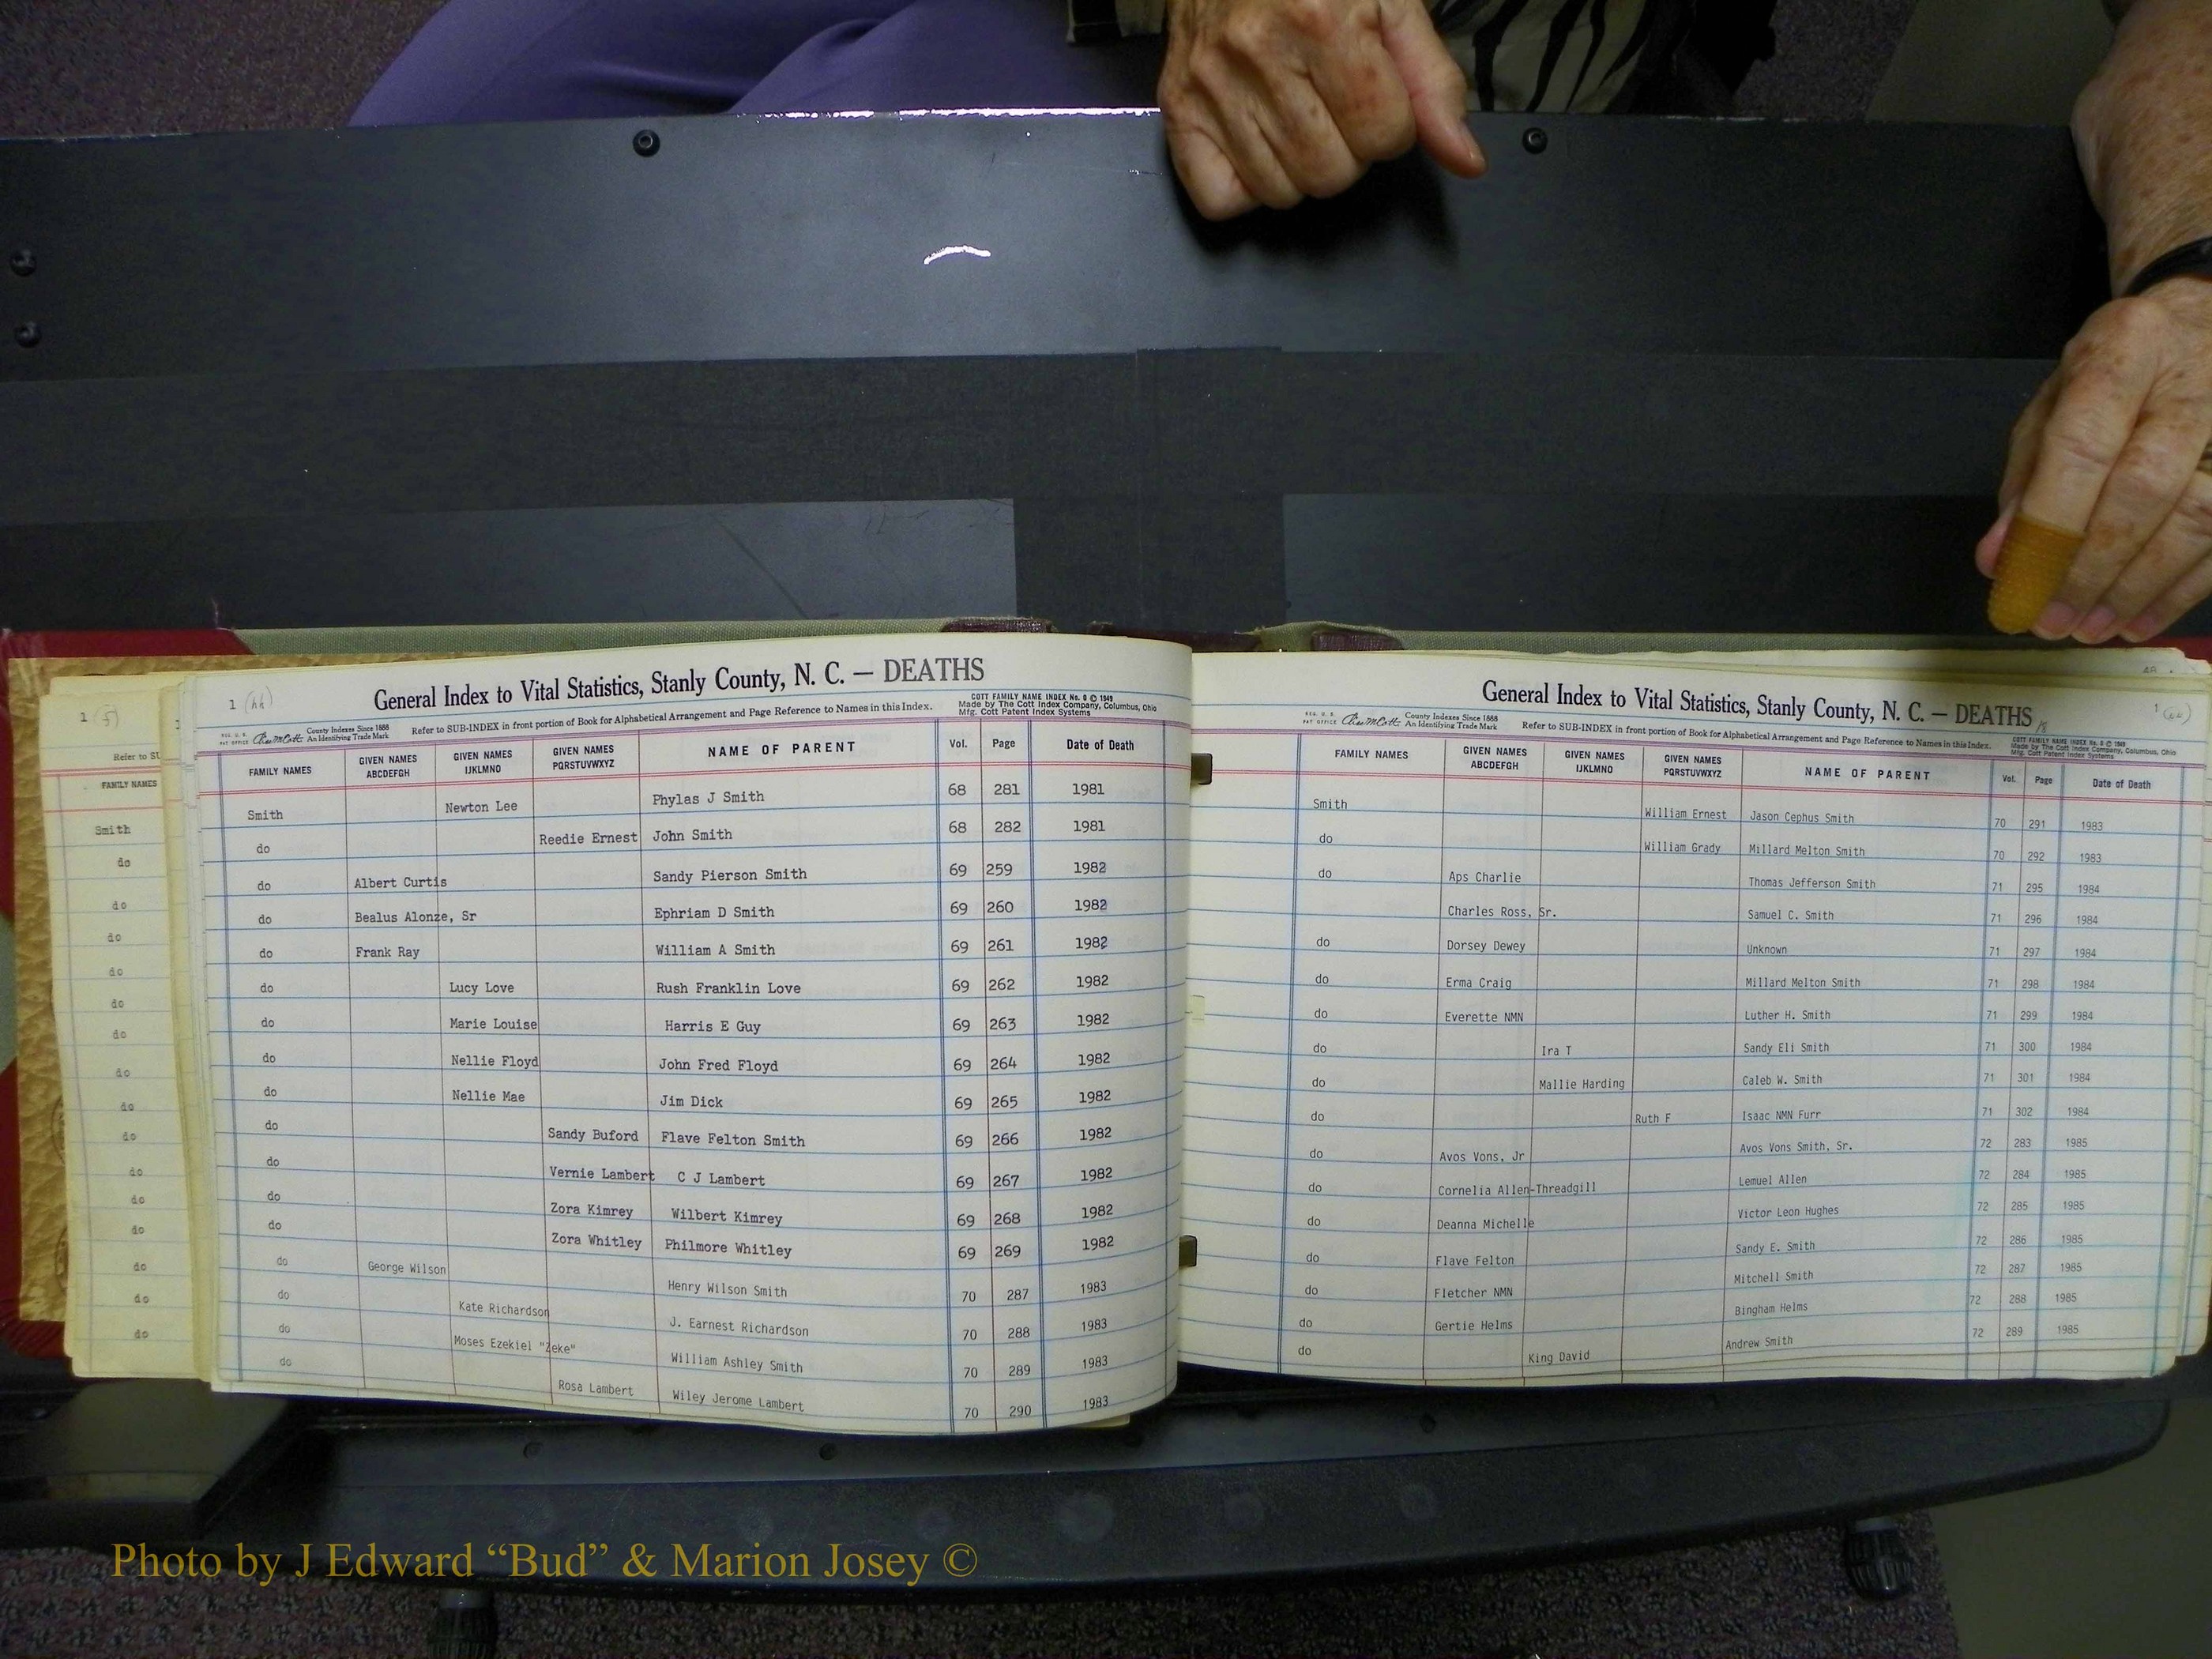 1 (hh)
General Index to Vital Statistics, Stanly County, N. C. — DEATHS
COTT FAMILY NAME INDEX No. 0 © 1949
Made by The Cott Index Company, Columbus, Ohio
Mfg. Cott Patent Index Systems
REG. U. S.
PAT OFFICE
County Indexes Since 1888
An Identifying Trade Mark
Refer to SUB-INDEX in front portion of Book for Alphabetical Arrangement and Page Reference to Names in this Index.
FAMILY NAMES GIVEN NAMES ABCDEFGH GIVEN NAMES IJKLMNO GIVEN NAMES PQRSTUVWXYZ NAME OF PARENT Vol. Page Date of Death
Smith Newton Lee Phylas J Smith 68 281 1981
do Reedie Ernest John Smith 68 282 1981
do Albert Curtis Sandy Pierson Smith 69 259 1982
do Bealus Alonze, Sr Ephriam D Smith 69 260 1982
do Frank Ray William A Smith 69 261 1982
do Lucy Love Rush Franklin Love 69 262 1982
do Marie Louise Harris E Guy 69 263 1982
do Nellie Floyd John Fred Floyd 69 264 1982
do Nellie Mae Jim Dick 69 265 1982
do Sandy Buford Flave Felton Smith 69 266 1982
do Vernie Lambert C J Lambert 69 267 1982
do Zora Kimrey Wilbert Kimrey 69 268 1982
do Zora Whitley Philmore Whitley 69 269 1982
do George Wilson Henry Wilson Smith 70 287 1983
do Kate Richardson J. Earnest Richardson 70 288 1983
do Moses Ezekiel "Zeke" William Ashley Smith 70 289 1983
do Rosa Lambert Wiley Jerome Lambert 70 290 1983
General Index to Vital Statistics, Stanly County, N. C. — DEATHS
COTT FAMILY NAME INDEX No. 0 © 1949
Made by The Cott Index Company, Columbus, Ohio
Mfg. Cott Patent Index Systems
REG. U. S.
PAT OFFICE
County Indexes Since 1888
An Identifying Trade Mark
Refer to SUB-INDEX in front portion of Book for Alphabetical Arrangement and Page Reference to Names in this Index.
FAMILY NAMES GIVEN NAMES ABCDEFGH GIVEN NAMES IJKLMNO GIVEN NAMES PQRSTUVWXYZ NAME OF PARENT Vol. Page Date of Death
Smith William Ernest Jason Cephus Smith 70 291 1983
do William Grady Millard Melton Smith 70 292 1983
do Aps Charlie Thomas Jefferson Smith 71 295 1984
Charles Ross, Sr. Samuel C. Smith 71 296 1984
do Dorsey Dewey Unknown 71 297 1984
do Erma Craig Millard Melton Smith 71 298 1984
do Everette NMN Luther H. Smith 71 299 1984
do Ira T Sandy Eli Smith 71 300 1984
do Mallie Harding Caleb W. Smith 71 301 1984
do Ruth F Isaac NMN Furr 71 302 1984
do Avos Vons, Jr Avos Vons Smith, Sr. 72 283 1985
do Cornelia Allen-Threadgill Lemuel Allen 72 284 1985
do Deanna Michelle Victor Leon Hughes 72 285 1985
do Flave Felton Sandy E. Smith 72 286 1985
do Fletcher NMN Mitchell Smith 72 287 1985
do Gertie Helms Bingham Helms 72 288 1985
do King David Andrew Smith 72 289 1985
1
Refer to SU
FAMILY NAMES
Smith
do
do
do
do
do
do
do
do
do
do
do
do
do
do
Photo by J Edward “Bud” & Marion Josey ©